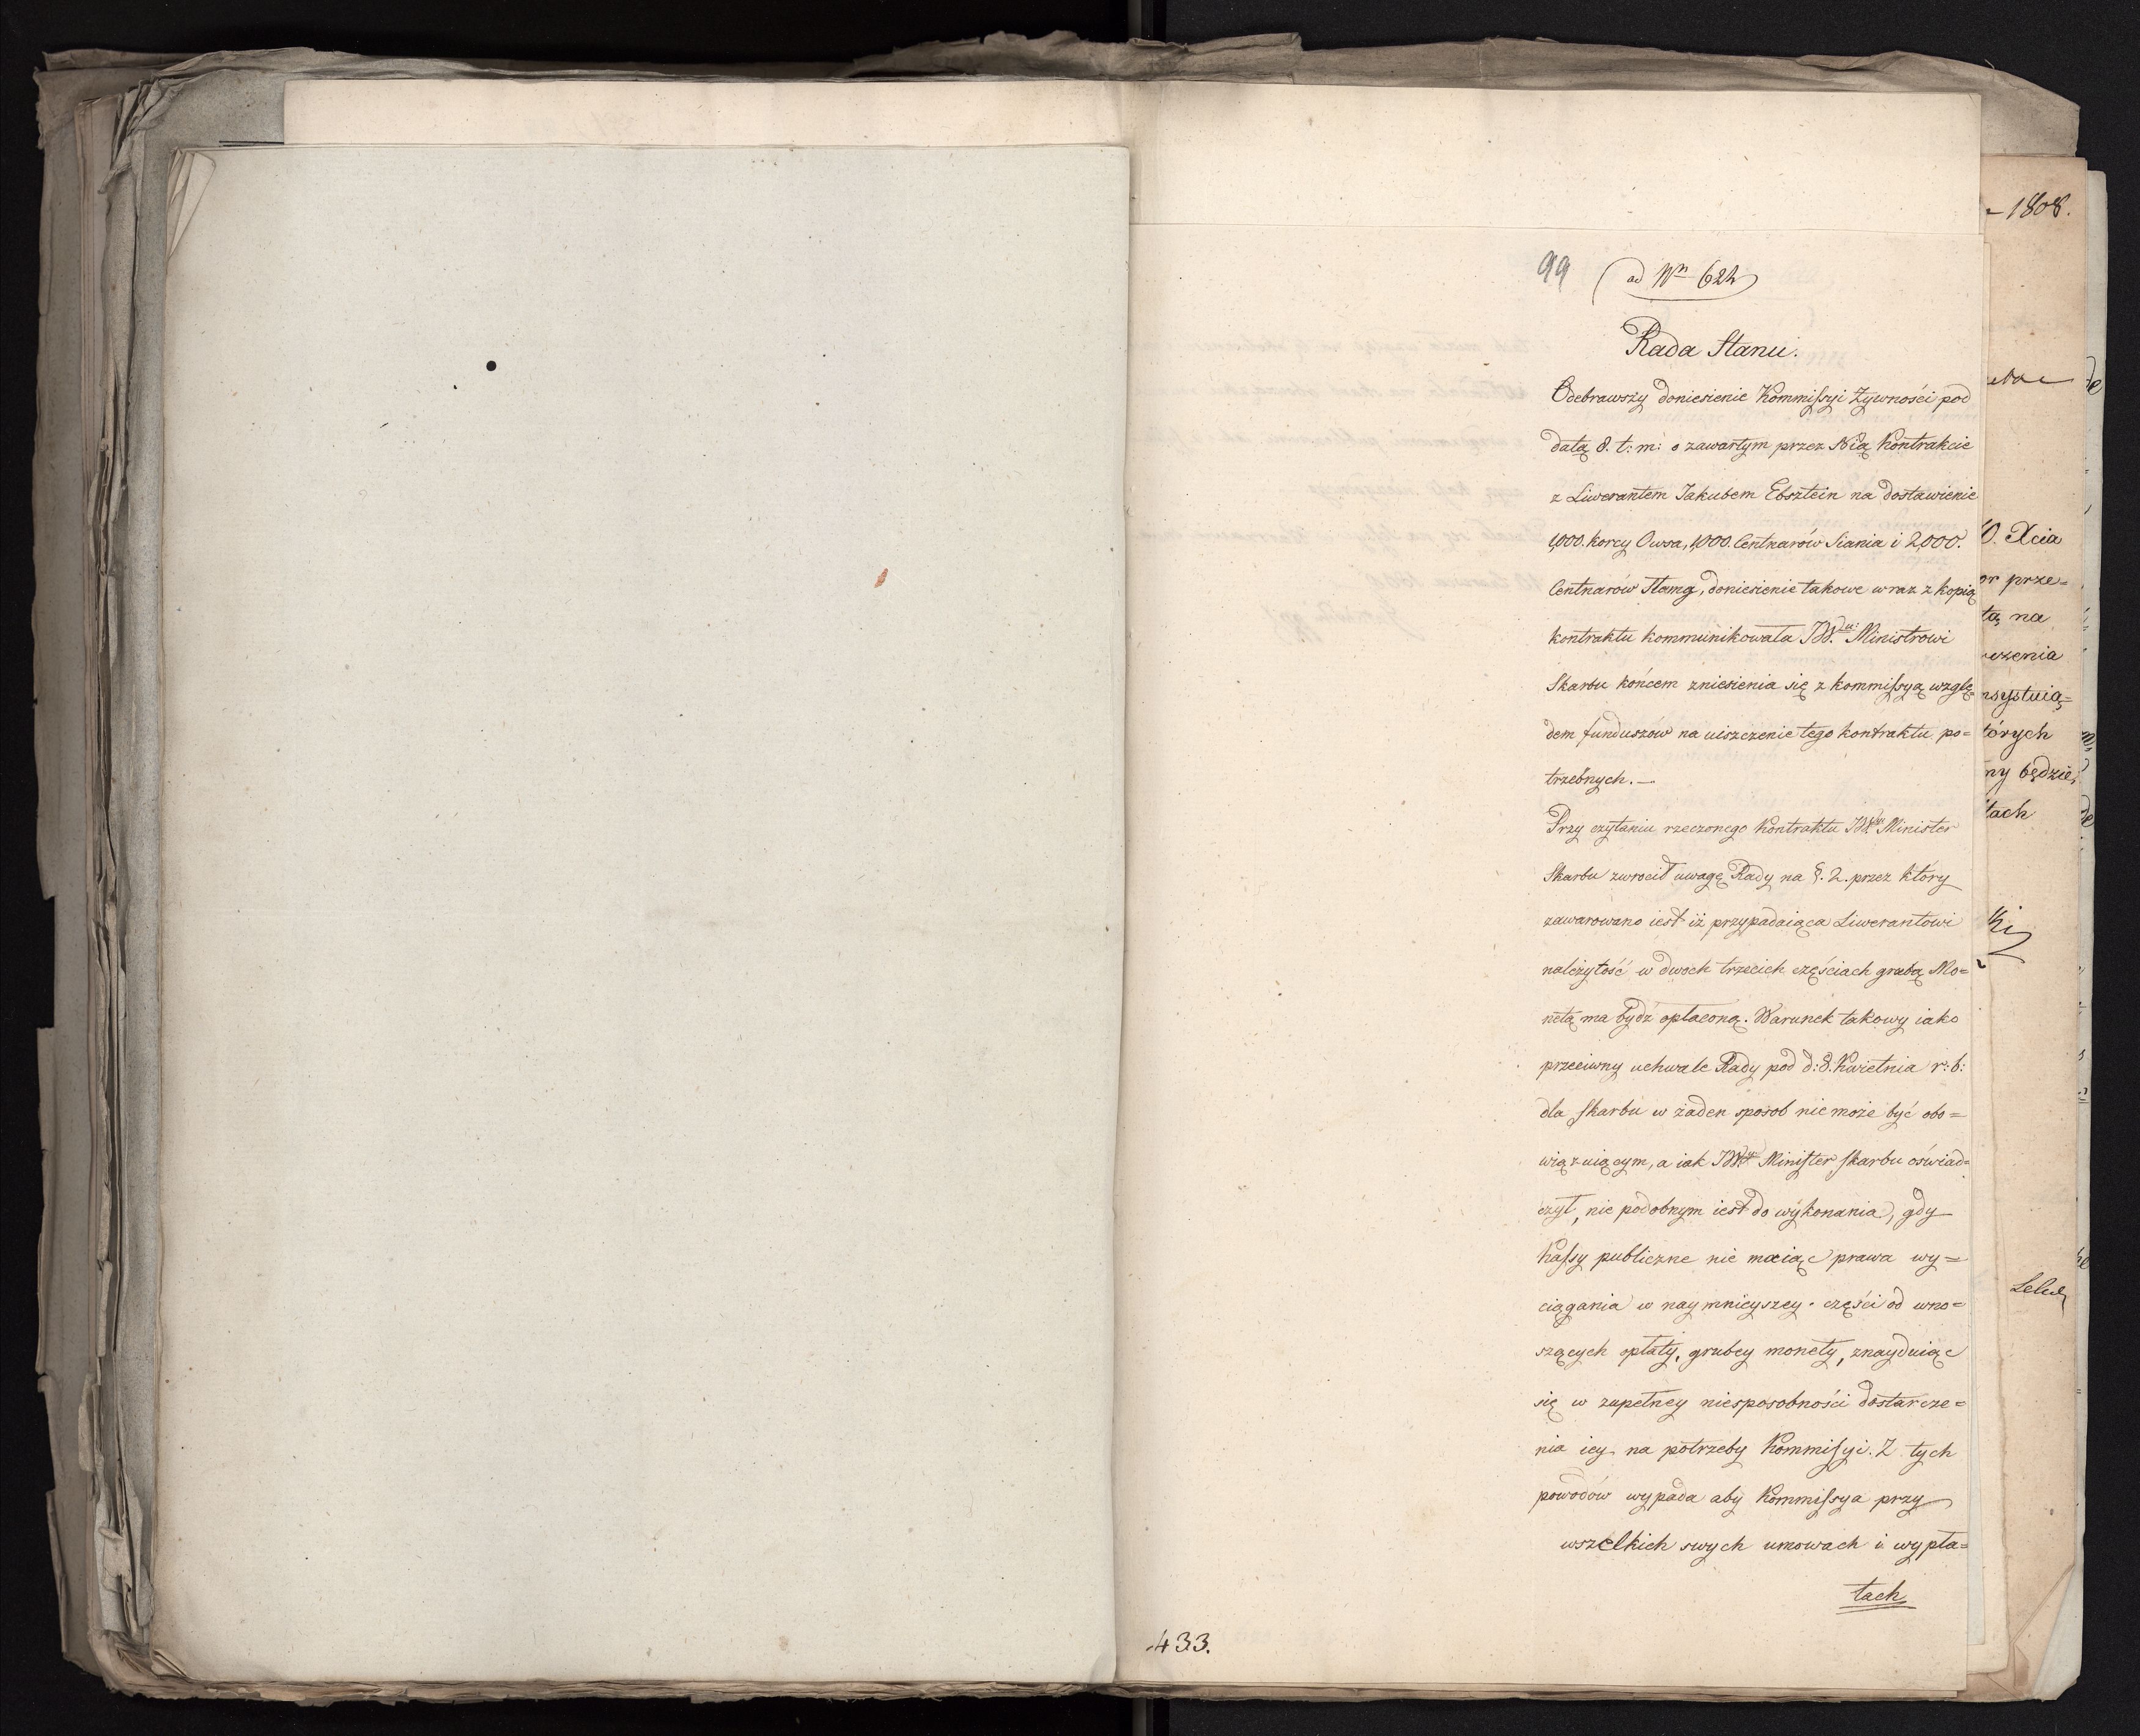 99 ad Nrn 622
Rada Stanu.
Odebrawszy doniesienie Kommissyi Żywności pod
datą 8. t: m: o zawartym przez Nią Kontrakcie
z Liwerantem Jakubem Ebsztein na dostawienie
1,000. korcy Owsa, 1,000. Centnarów Siania i 2,000.
Centnarów Słamy, doniesienie takowe wraz z kopią
kontraktu kommunikowała JW. Ministrowi
Skarbu końcem zniesienia się z kommissyą wzglę=
dem funduszów na uiszczenie tego kontraktu po=
trzebnych. —
Przy czytaniu rzeczonego Kontraktu JW Minister
Skarbu zwrocił uwagę Rady na §. 2. przez który
zawarowano iest iż przypadaiąca Liwerantowi
należytość w dwoch trzecich częściach grubą Mo=
netą ma bydź opłaconą. Warunek takowy iako
przeciwny uchwale Rady pod d: 8. Kwietnia r: b:
dla skarbu w żaden sposob nie może być obo=
wiązuiącym, a iak JW. Minister skarbu oświad=
czył, nie podobnym iest do wykonania, gdy
Kassy publiczne nie maiąc prawa wy=
ciągania w naymnieyszey części od wno=
szących opłaty, grubey monety, znayduiąc
się w zupełney niesposobności dostarcze=
nia iey na potrzeby Kommissyi. Z tych
powodów wypada aby Kommissya przy
wszelkich swych umowach i wypła=
tach
433.
– 1808.
O. Xcia
or prze=
tą na
czenia
nsystuią=
tórych
ny będzie,
tach
ki